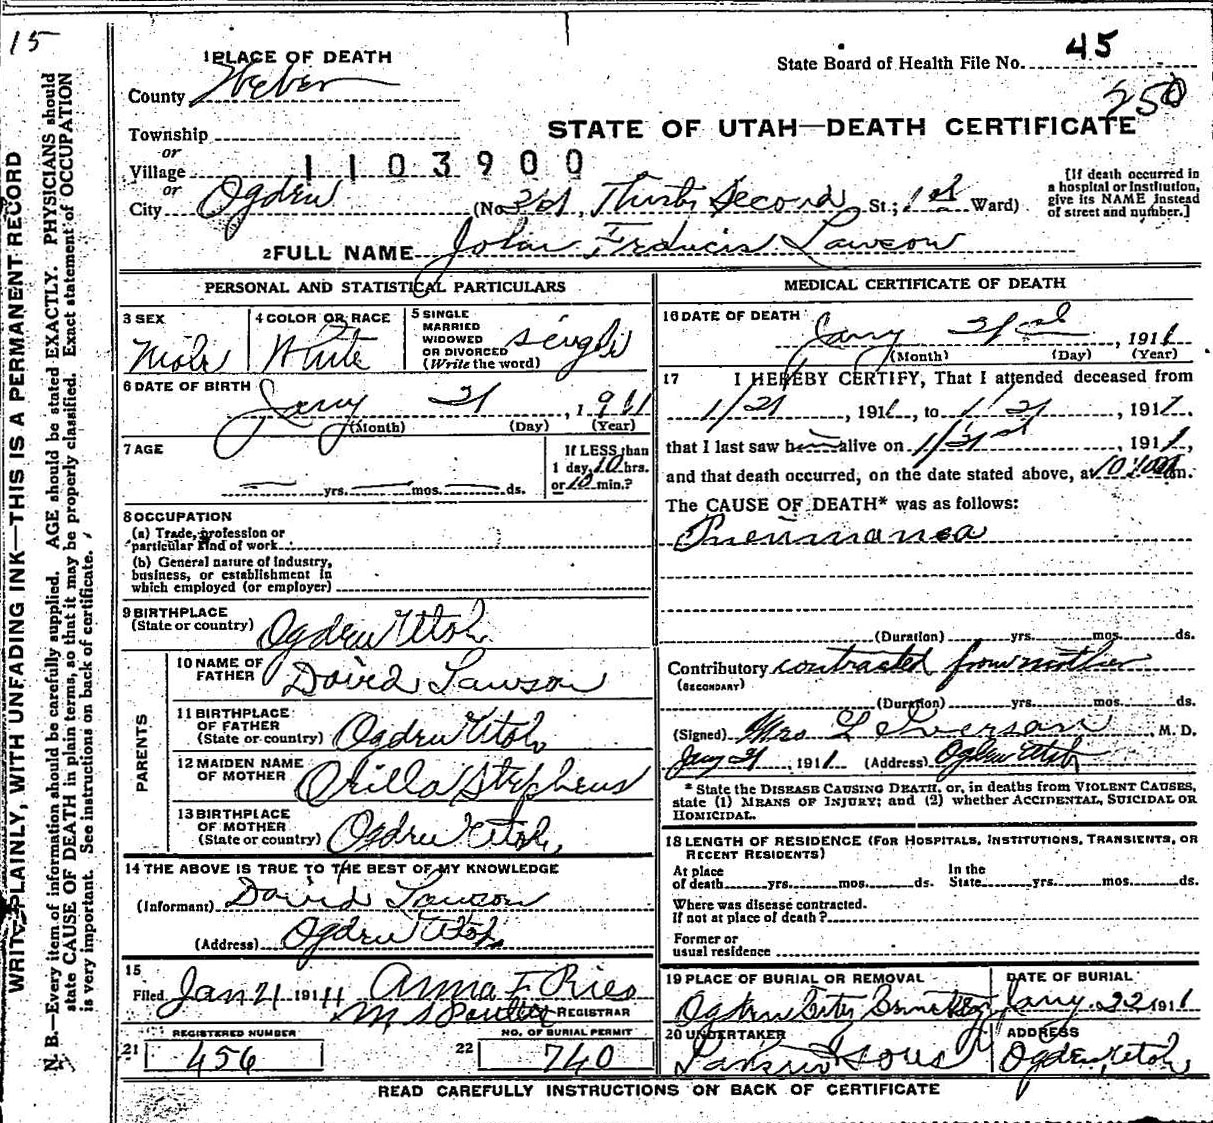 15
WRITE PLAINLY, WITH UNFADING INK—THIS IS A PERMANENT RECORD
N. B.—Every item of information should be carefully supplied. AGE should be stated EXACTLY. PHYSICIANS should
state CAUSE OF DEATH in plain terms, so that it may be properly classified. Exact statement of OCCUPATION
is very important. See instructions on back of certificate.
1 PLACE OF DEATH
State Board of Health File No. 45
County Weber
250
Township
STATE OF UTAH—DEATH CERTIFICATE
or
Village 1103900
or
City Ogden (No. Thirty Second St.; 1st Ward)
[If death occurred in
a hospital or institution,
give its NAME instead
of street and number.]
2 FULL NAME John Francis Lawson
PERSONAL AND STATISTICAL PARTICULARS
3 SEX
Male
4 COLOR OR RACE
White
5 SINGLE
MARRIED
WIDOWED
OR DIVORCED
(Write the word)
single
6 DATE OF BIRTH
Jany 21, 1911
(Month) (Day) (Year)
7 AGE
yrs. mos. ds.
If LESS than
1 day, 10 hrs.
or 10 min.?
8 OCCUPATION
(a) Trade, profession or
particular kind of work
(b) General nature of industry,
business, or establishment in
which employed (or employer)
9 BIRTHPLACE
(State or country) Ogden Utah
PARENTS
10 NAME OF
FATHER David Lawson
11 BIRTHPLACE
OF FATHER
(State or country) Ogden Utah
12 MAIDEN NAME
OF MOTHER Orilla Stephens
13 BIRTHPLACE
OF MOTHER
(State or country) Ogden Utah
14 THE ABOVE IS TRUE TO THE BEST OF MY KNOWLEDGE
(Informant) David Lawson
(Address) Ogden Utah
15
Filed Jan 21 1911 Anna F Ries
REGISTRAR
REGISTERED NUMBER
21 456
NO. OF BURIAL PERMIT
22 740
MEDICAL CERTIFICATE OF DEATH
16 DATE OF DEATH
Jany 21st, 1911
(Month) (Day) (Year)
17 I HEREBY CERTIFY, That I attended deceased from
1/21, 1911, to 1/21, 1911.
that I last saw him alive on 1/21st, 1911,
and that death occurred, on the date stated above, at m.
The CAUSE OF DEATH* was as follows:
Pneumanea
(Duration) yrs. mos. ds.
Contributory contracted from mother
(SECONDARY)
(Duration) yrs. mos. ds.
(Signed) Mrs L Iverson M. D.
Jany 21, 1911 (Address) Ogden Utah
* State the DISEASE CAUSING DEATH, or, in deaths from VIOLENT CAUSES,
state (1) MEANS OF INJURY; and (2) whether ACCIDENTAL, SUICIDAL OR
HOMICIDAL.
18 LENGTH OF RESIDENCE (FOR HOSPITALS, INSTITUTIONS, TRANSIENTS, OR
RECENT RESIDENTS)
At place
of death yrs. mos. ds.
In the
State yrs. mos. ds.
Where was disease contracted.
If not at place of death?
Former or
usual residence
19 PLACE OF BURIAL OR REMOVAL
Ogden City Cemetery
DATE OF BURIAL
Jany. 22 1911
20 UNDERTAKER
Larkin & Sons
ADDRESS
Ogden, Utah
READ CAREFULLY INSTRUCTIONS ON BACK OF CERTIFICATE